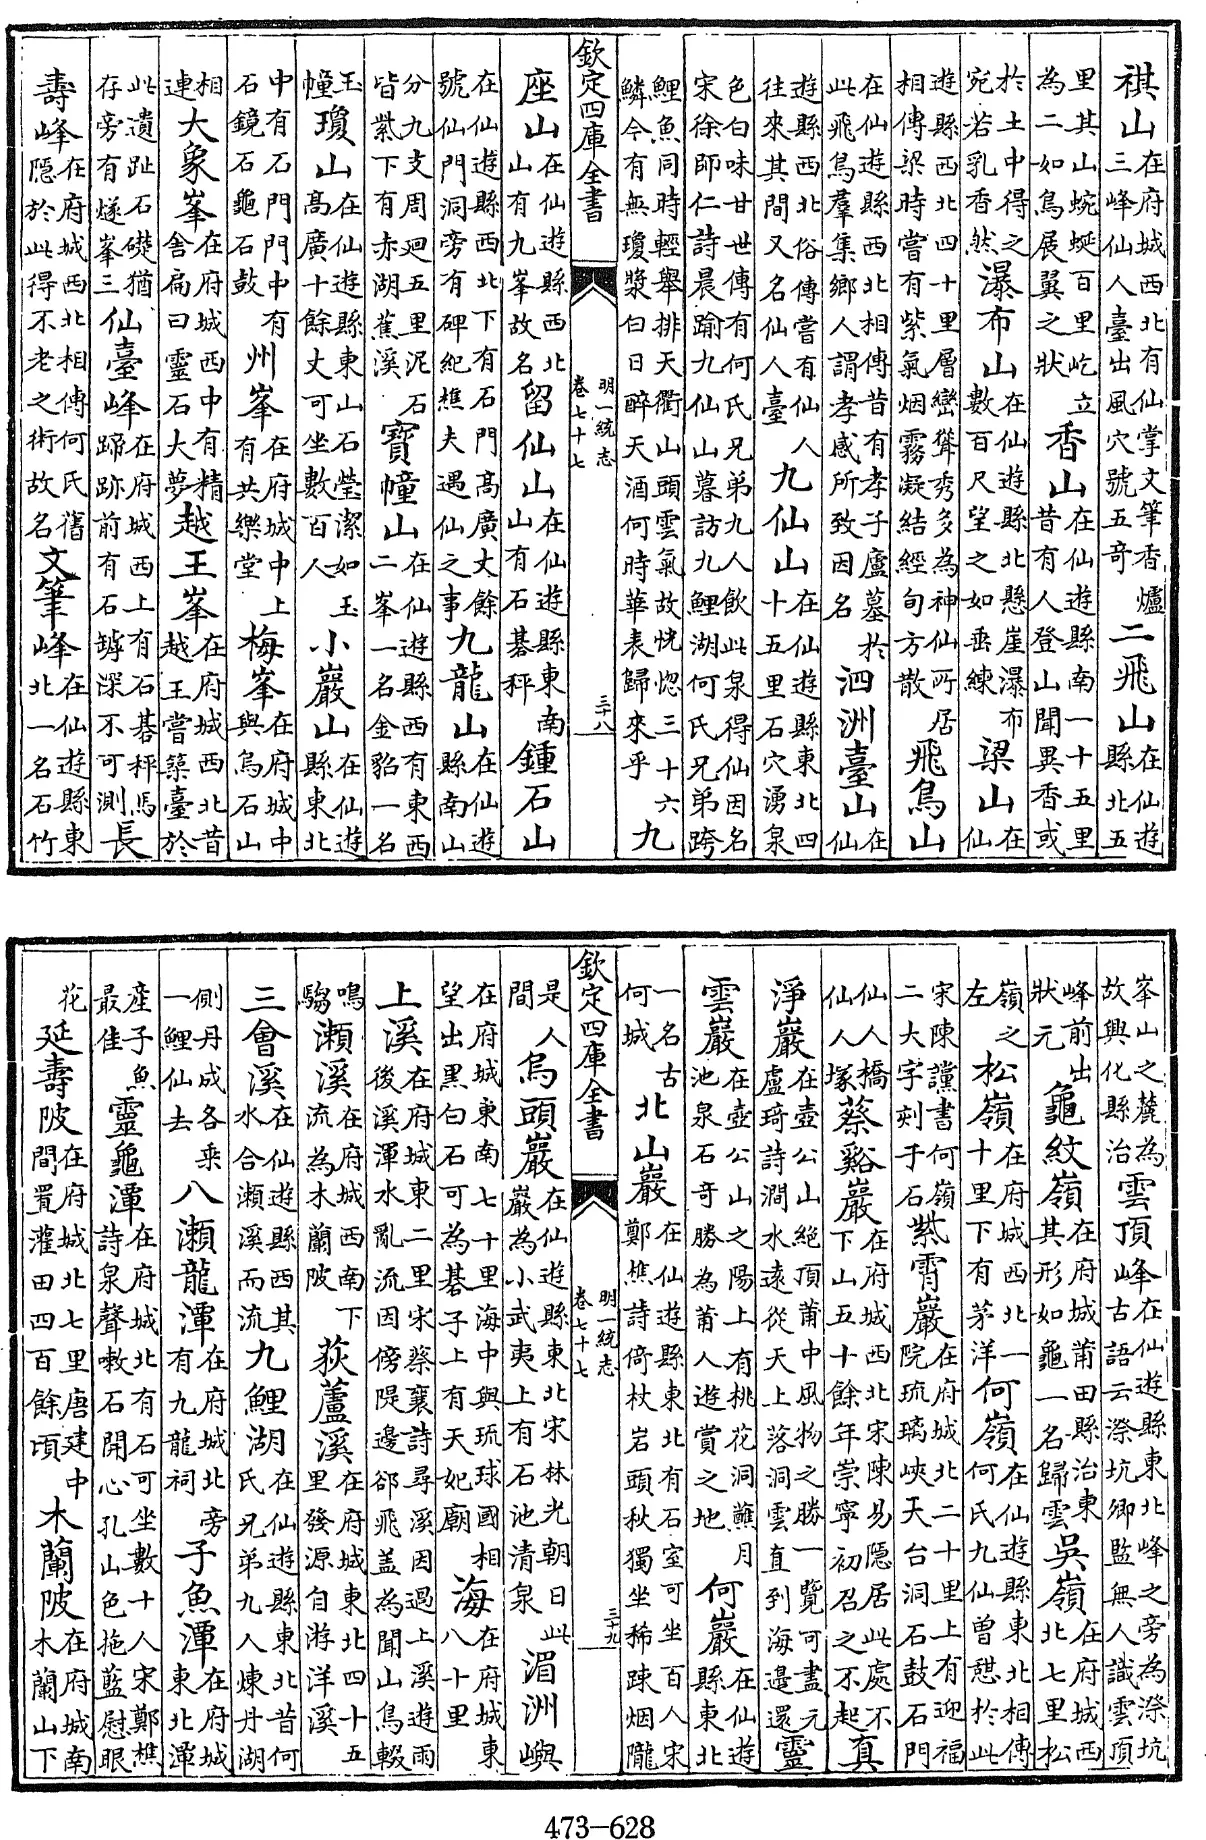 祺山在府城西北有仙掌文筆香爐三峰仙人臺出風穴號五奇二飛山在仙遊縣北五
里其山蜿蜒百里屹立為二如鳥展翼之狀香山在仙遊縣南一十五里昔有人登山聞異香或
於土中得之宛若乳香然瀑布山在仙遊縣北懸崖瀑布數百尺望之如垂練梁山在仙
遊縣西北四十里層巒聳秀多為神仙所居相傳梁時嘗有紫氣烟霧凝結經旬方散飛鳥山
在仙遊縣西北相傳昔有孝子廬墓於此飛鳥羣集鄉人謂孝感所致因名泗洲臺山在仙
遊縣西北俗傳嘗有仙人往來其間又名仙人臺九仙山在仙遊縣東北四十五里石穴湧泉
色白味甘世傳有何氏兄弟九人飲此泉得仙因名宋徐師仁詩晨踰九仙山暮訪九鯉湖何氏兄弟跨
鯉魚同時輕舉排天衢山頭雲氣故恍惚三十六鱗今有無瓊漿白日醉天酒何時華表歸來乎九
欽定四庫全書
明一統志
卷七十七
三十八
座山在仙遊縣西北山有九峯故名留仙山在仙遊縣東南山有石碁秤鍾石山
在仙遊縣西北下有石門高廣丈餘號仙門洞旁有碑紀樵夫遇仙之事九龍山在仙遊縣南山
分九支周廻五里泥石皆紫下有赤湖蕉溪寶幢山在仙遊縣西有東西二峯一名金貂一名
玉幢瓊山在仙遊縣東山石瑩潔如玉高廣十餘丈可坐數百人小巖山在仙遊縣東北
中有石門門中有石鏡石龜石鼓州峯在府城中上有共樂堂梅峯在府城中與烏石山
相連大象峯在府城西中有精舍扁曰靈石大夢越王峯在府城西北昔越王嘗築臺於
此遺趾石礎猶存旁有燧峯三仙臺峰在府城西上有石碁枰馬蹄跡前有石罅深不可測長
壽峰在府城西北相傳何氏舊隱於此得不老之術故名文筆峰在仙遊縣東北一名石竹
峯山之麓為故興化縣治雲頂峰在仙遊縣東北峰之旁為漈坑古語云漈坑卿監無人識雲頂
峰前出狀元龜紋嶺在府城莆田縣治東其形如龜一名歸雲吳嶺在府城西北七里松
嶺之左松嶺在府城西北一十里下有茅洋何嶺在仙遊縣東北相傳何氏九仙曾憩於此
宋陳讜書何嶺二大字刻于石紫霄巖在府城北二十里上有迎福院琉璃峽天台洞石鼓石門
仙人橋仙人塚蔡谿巖在府城西北宋陳易隱居此處不下山五十餘年崇寧初召之不起真
淨巖在壺公山絕頂莆中風物之勝一覽可盡元盧琦詩澗水遠從天上落洞雲直到海邊還靈
雲巖在壺公山之陽上有桃花洞蘸月池泉石奇勝為莆人遊賞之地何巖在仙遊縣東北
一名古何城北山巖在仙遊縣東北有石室可坐百人宋鄭樵詩倚杖岩頭秋獨坐稀踈烟隴
欽定四庫全書
明一統志
卷七十七
三十九
是人間烏頭巖在仙遊縣東北宋林光朝曰此巖為小武夷上有石池清泉湄洲嶼
在府城東南七十里海中與琉球國相望出黑白石可為碁子上有天妃廟海在府城東八十里
上溪在府城東二里宋蔡襄詩尋溪因過上溪遊雨後溪渾水亂流因傍隄邊郤飛盖為聞山鳥輟
鳴騶瀨溪在府城西南下流為木蘭陂荻蘆溪在府城東北四十五里發源自游洋溪
三會溪在仙遊縣西其水合瀬溪而流九鯉湖在仙遊縣東北昔何氏兄弟九人煉丹湖
側丹成各乘一鯉仙去八瀬龍潭在府城北旁有九龍祠子魚潭在府城東北潭
産子魚最佳靈龜潭在府城北有石可坐數十人宋鄭樵詩泉聲嗷石開心孔山色拖藍慰眼
花延壽陂在府城北七里唐建中間置灌田四百餘頃木蘭陂在府城南木蘭山下
473–628